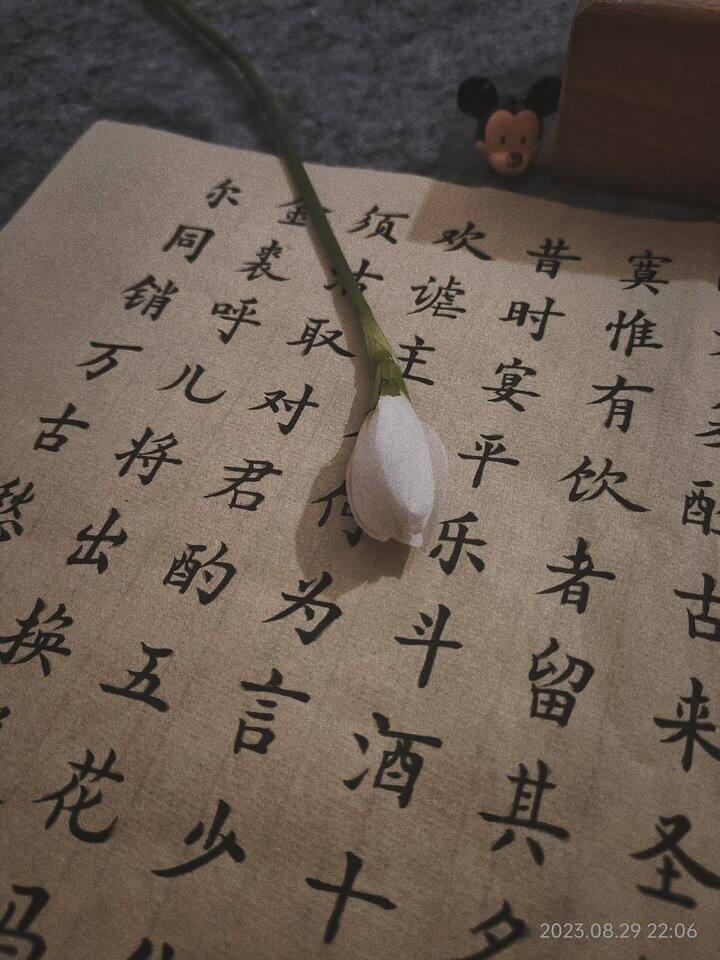 古来圣
寞惟有饮者留其
昔时宴平乐斗酒十
欢谑主何为言少
须沽取对君酌五花马
金裘呼儿将出换
尔同销万古愁
2023.08.29 22:06